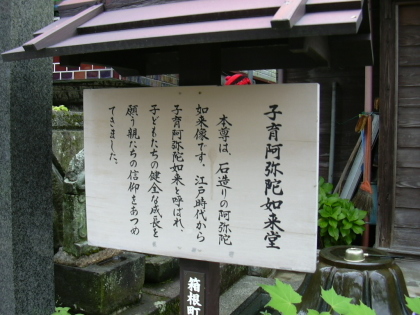 子育阿弥陀如来堂
本尊は、石造りの阿弥陀
如来像です。江戸時代から
子育阿弥陀如来と呼ばれ、
子どもたちの健全な成長を
願う親たちの信仰をあつめ
てきました。
箱根町